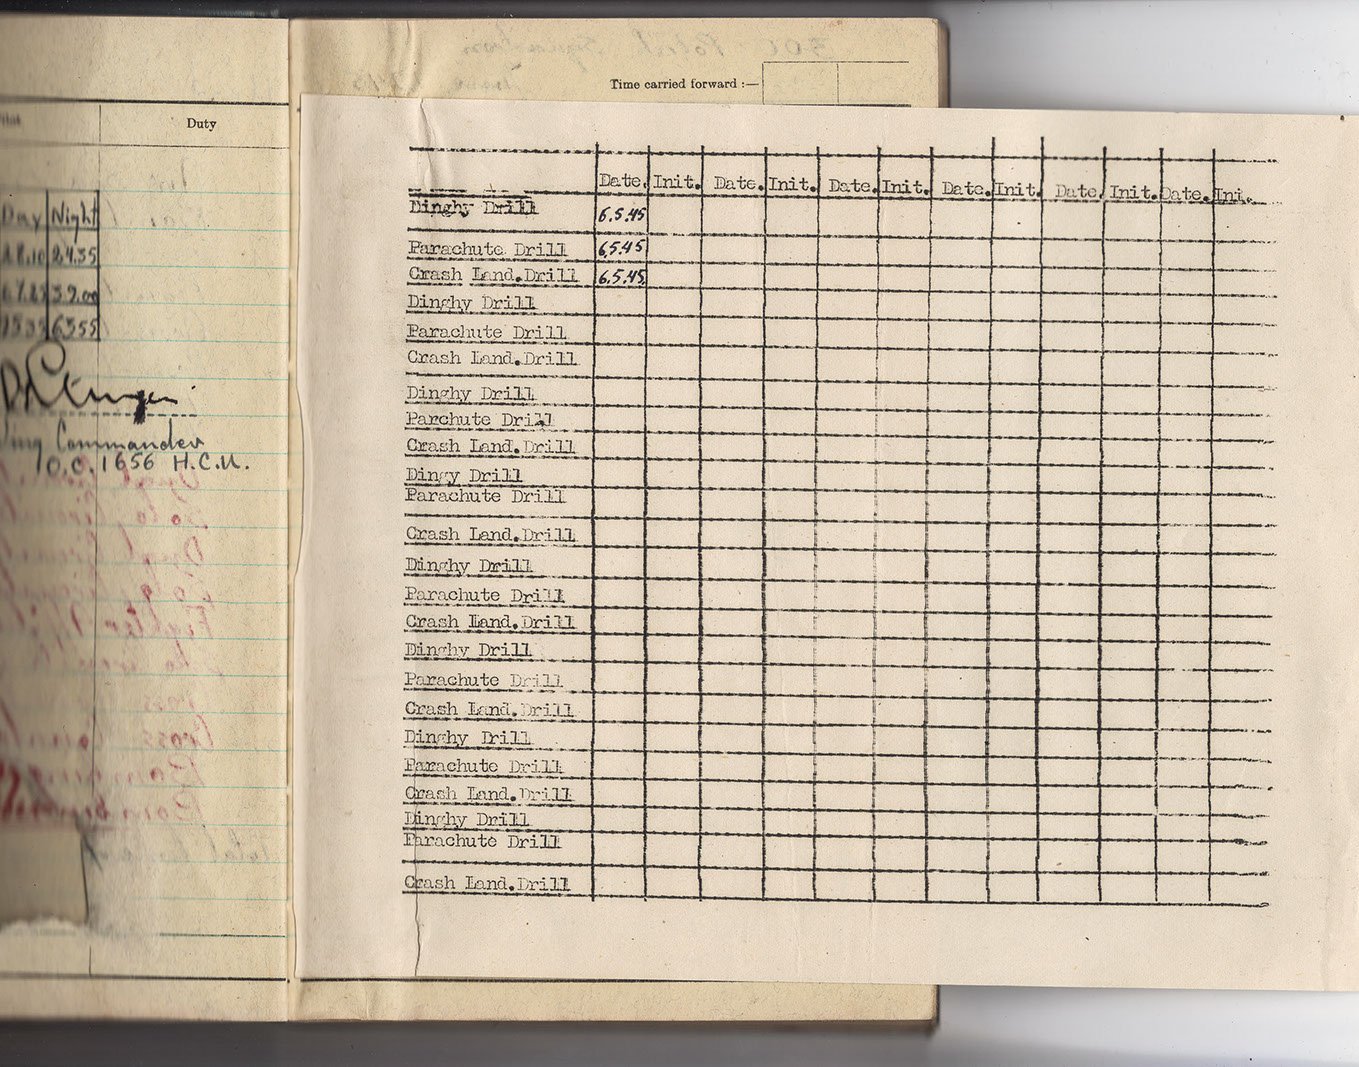 Time carried forward :—
Duty
Day Night
24.35
39.00
63.55
Commander
O.C. 1656 H.C.U.
Date. Init. Date. Init. Date. Init. Date. Init. Date. Init. Date. Ini.
Dinghy Drill 6.5.45
Parachute Drill 6.5.45
Crash Land.Drill 6.5.45
Dinghy Drill
Parachute Drill
Crash Land.Drill
Dinghy Drill
Parchute Drill
Crash Land.Drill
Dingy Drill
Parachute Drill
Crash Land.Drill
Dinghy Drill
Parachute Drill
Crash Land.Drill
Dinghy Drill
Parachute Drill
Crash Land.Drill
Dinghy Drill
Parachute Drill
Crash Land.Drill
Dinghy Drill
Parachute Drill
Crash Land.Drill